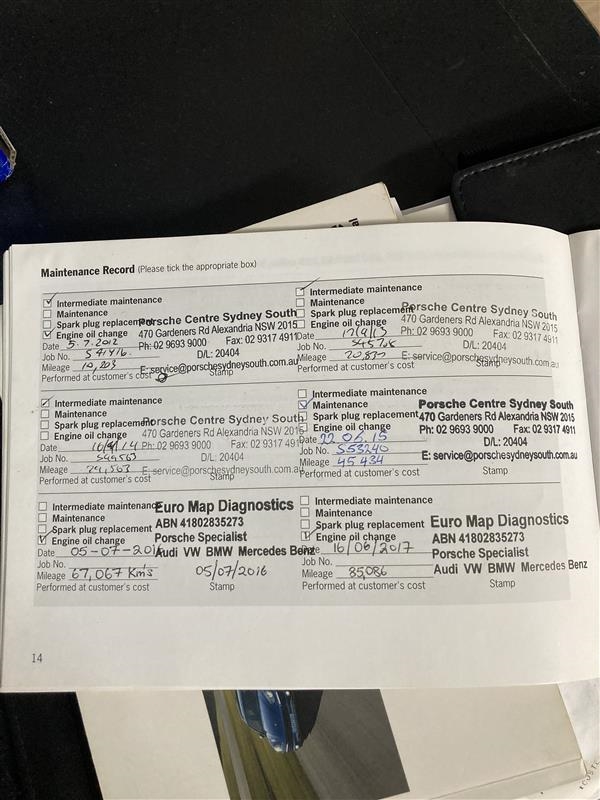 Maintenance Record (Please tick the appropriate box)
Intermediate maintenance
Maintenance
Spark plug replacement
Engine oil change
Date 5.7.2012
Job No. 541416.
Mileage 10,203
Performed at customer's cost
Porsche Centre Sydney South
470 Gardeners Rd Alexandria NSW 2015
Ph: 02 9693 9000 Fax: 02 9317 4911
D/L: 20404
E: service@porschesydneysouth.com.au
Intermediate maintenance
Maintenance
Spark plug replacement
Engine oil change
Date
Job No.
Mileage 20,830
Performed at customer's cost
Stamp
Porsche Centre Sydney South
470 Gardeners Rd Alexandria NSW 2015
Ph: 02 9693 9000 Fax: 02 9317 4911
D/L: 20404
E: service@porschesydneysouth.com.au
Intermediate maintenance
Maintenance
Spark plug replacement
Engine oil change
Date
Job No.
Mileage
Performed at customer's cost
Stamp
Porsche Centre Sydney South
470 Gardeners Rd Alexandria NSW 2015
Ph: 02 9693 9000 Fax: 02 9317 4911
D/L: 20404
E: service@porschesydneysouth.com.au
Intermediate maintenance
Maintenance
Spark plug replacement
Engine oil change
Date 22.05.15
Job No. 553240
Mileage 45434
Performed at customer's cost
Stamp
Porsche Centre Sydney South
470 Gardeners Rd Alexandria NSW 2015
Ph: 02 9693 9000 Fax: 02 9317 4911
D/L: 20404
E: service@porschesydneysouth.com.au
Intermediate maintenance
Maintenance
Spark plug replacement
Engine oil change
Date 05-07-2016
Job No.
Mileage 67,067 Km's
Performed at customer's cost
Euro Map Diagnostics
ABN 41802835273
Porsche Specialist
Audi VW BMW Mercedes Benz
05/07/2016
Stamp
Intermediate maintenance
Maintenance
Spark plug replacement
Engine oil change
Date 16/06/2017
Job No.
Mileage 85,086
Performed at customer's cost
Euro Map Diagnostics
ABN 41802835273
Porsche Specialist
Audi VW BMW Mercedes Benz
Stamp
14